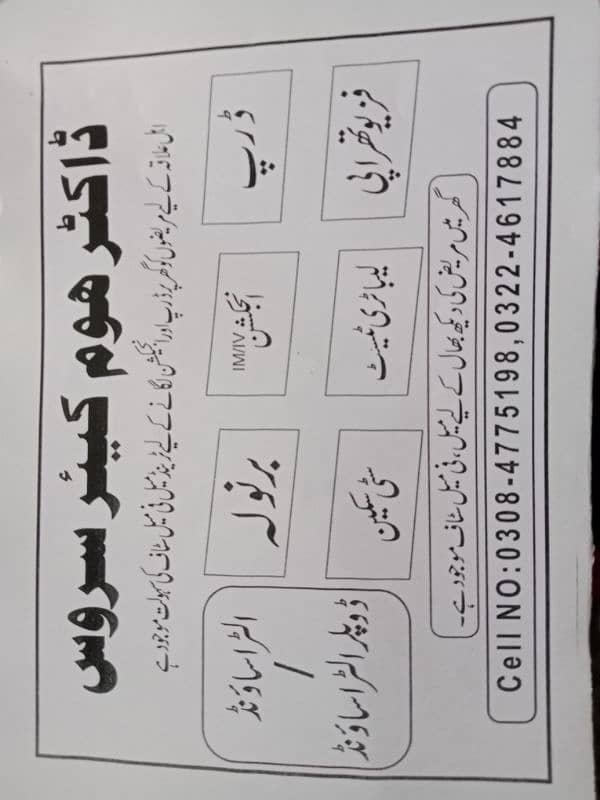 ڈاکٹر ھوم کیئر سروس
اہل علاقہ کے لیے مریضوں کو گھر پر ڈرپ اور انجکشن لگانے کے لیے ٹرینڈ میل فی میل سٹاف کی سہولت موجود ہے
ڈرپ
انجکشن
IM/IV
برنولہ
الٹراساؤنڈ
/
ڈوپلر الٹراساؤنڈ
فزیوتھراپی
لیبارٹری ٹیسٹ
سٹی سکین
گھر میں مریض کی دیکھ بھال کے لیے میل، فی میل سٹاف موجود ہے۔
Cell NO:0308-4775198,0322-4617884